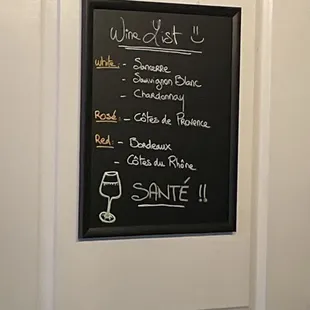 Wine List :)
White: - Sancerre
- Sauvignon Blanc
- Chardonnay
Rosé: - Côtes de Provence
Red: - Bordeaux
- Côtes du Rhône
SANTÉ !!